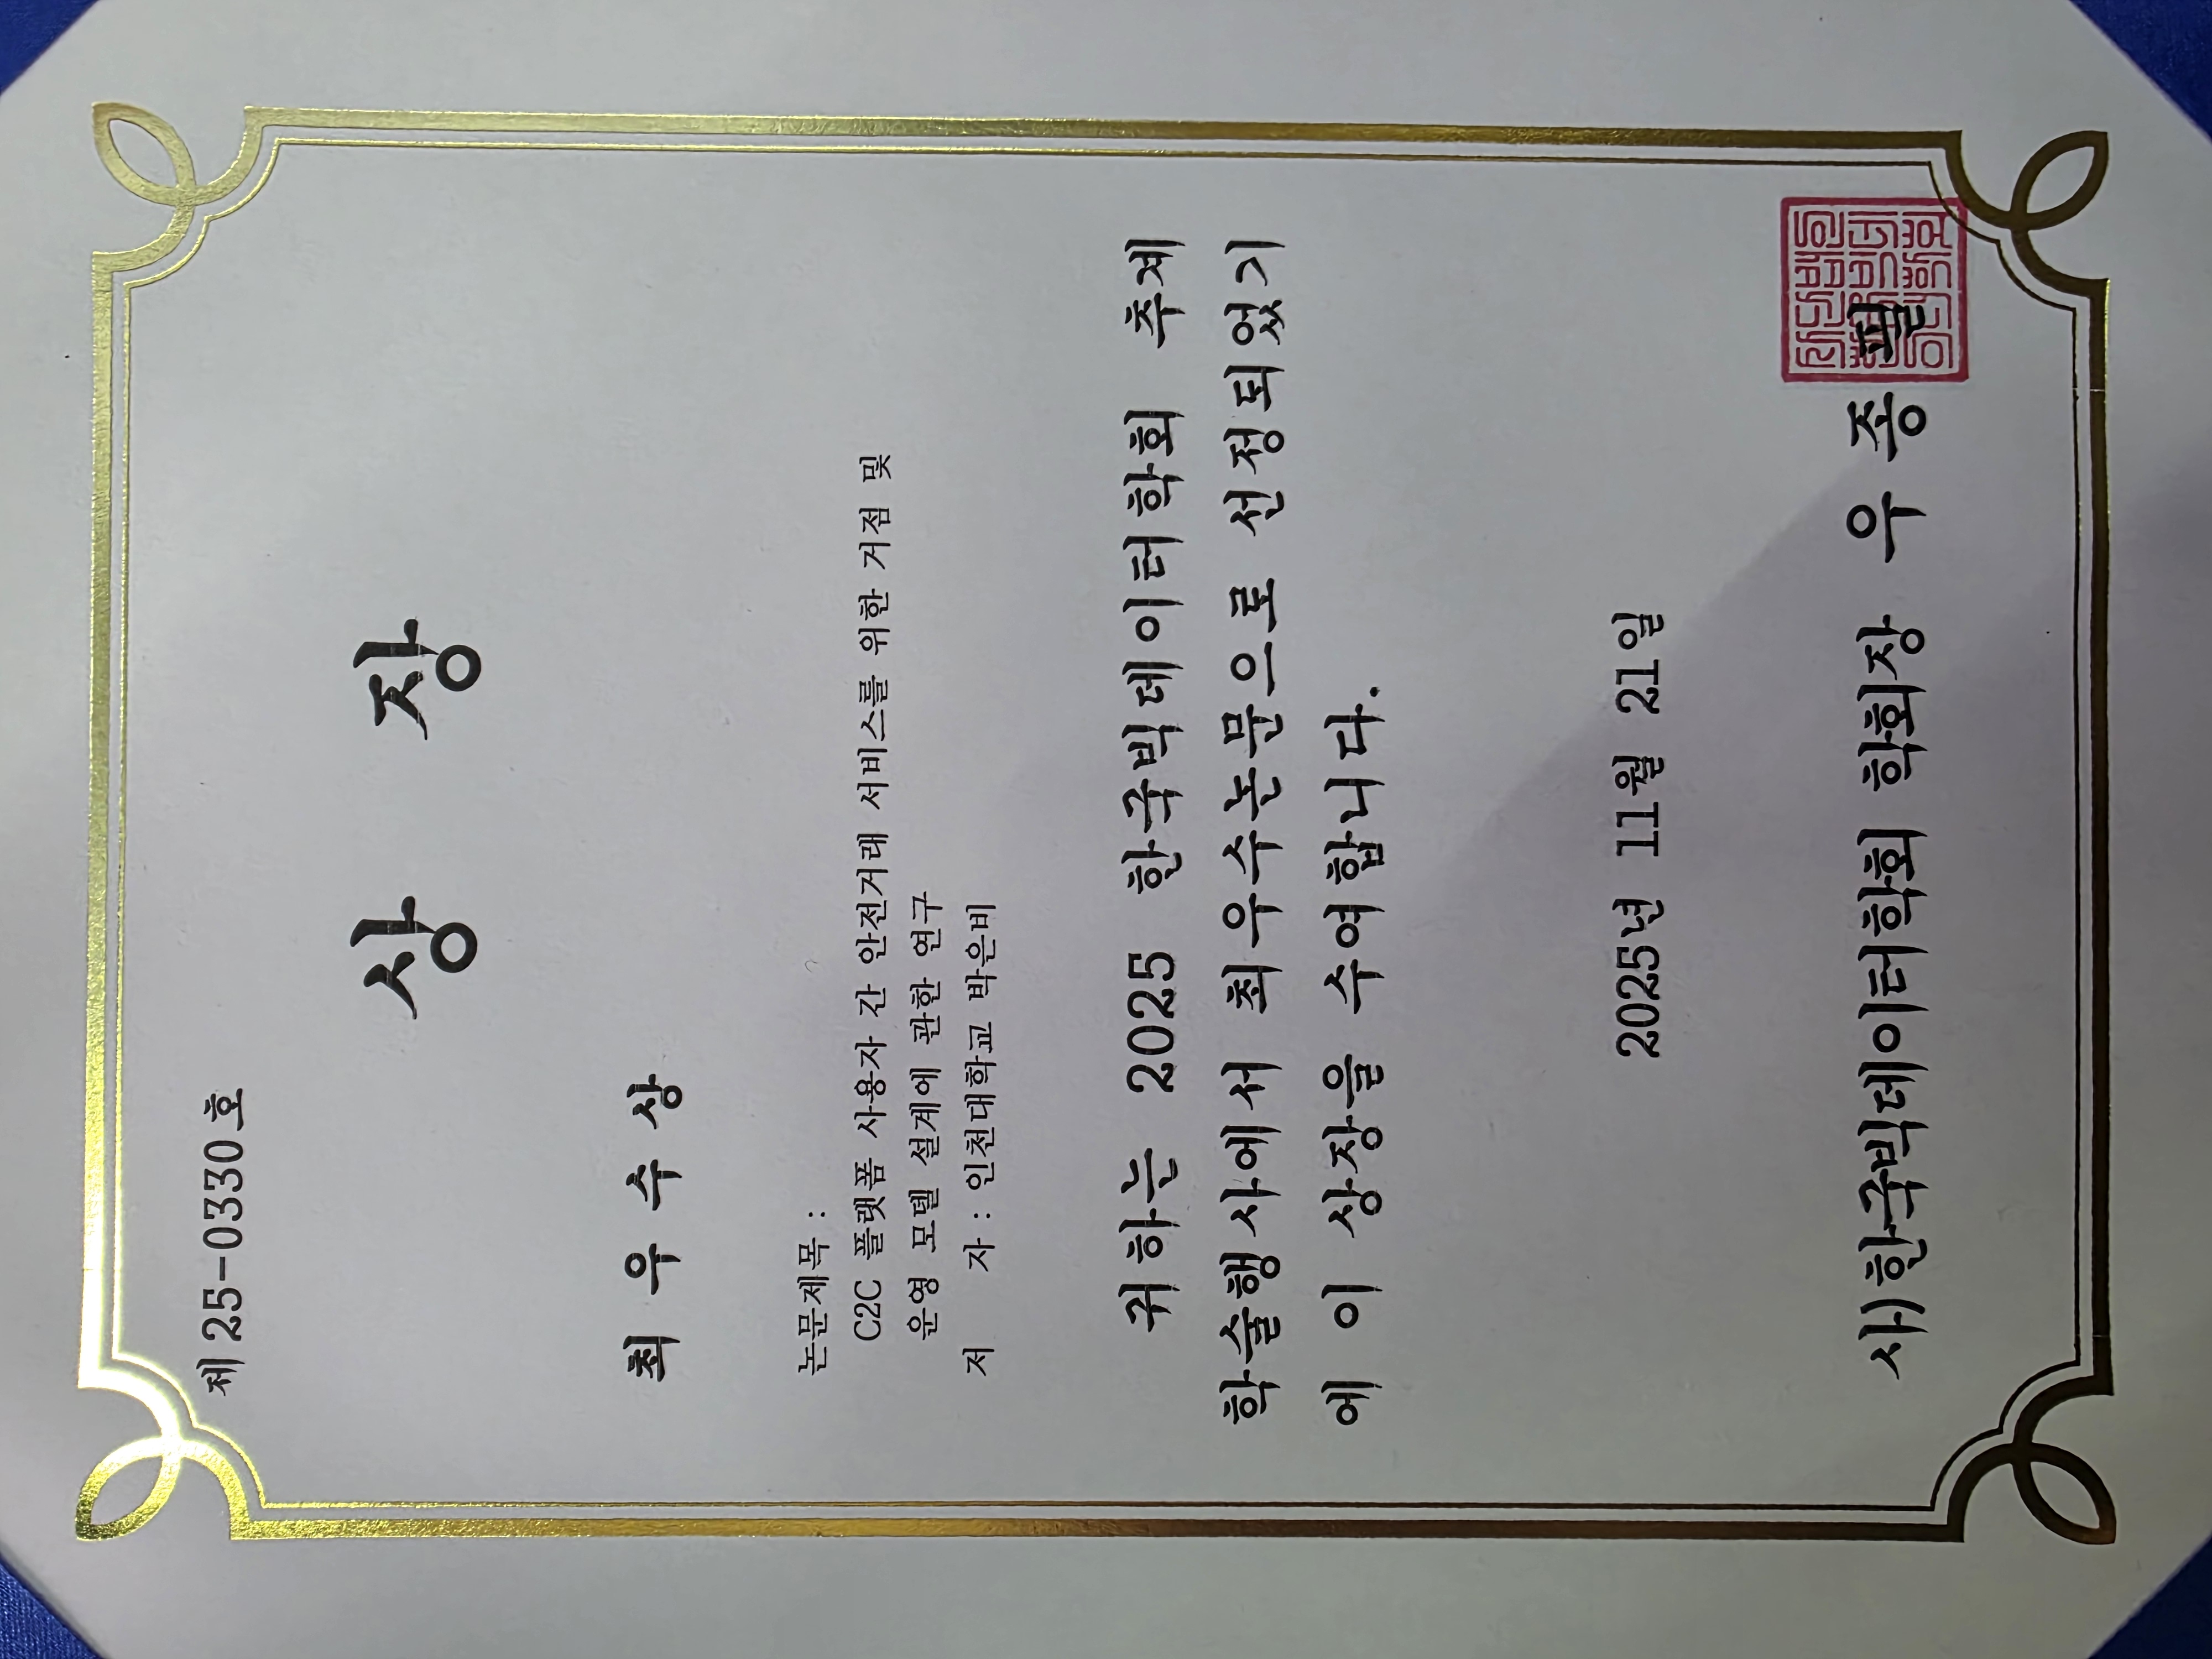 제 25-0330 호
상 장
최 우 수 상
논문제목 :
C2C 플랫폼 사용자 간 안전거래 서비스를 위한 거점 및
운영 모델 설계에 관한 연구
저 자 : 인천대학교 박은비
귀하는 2025 한국빅데이터학회 추계
학술행사에서 최우수논문으로 선정되었기
에 이 상장을 수여합니다.
2025년 11월 21일
사)한국빅데이터학회 학회장 우 종 필